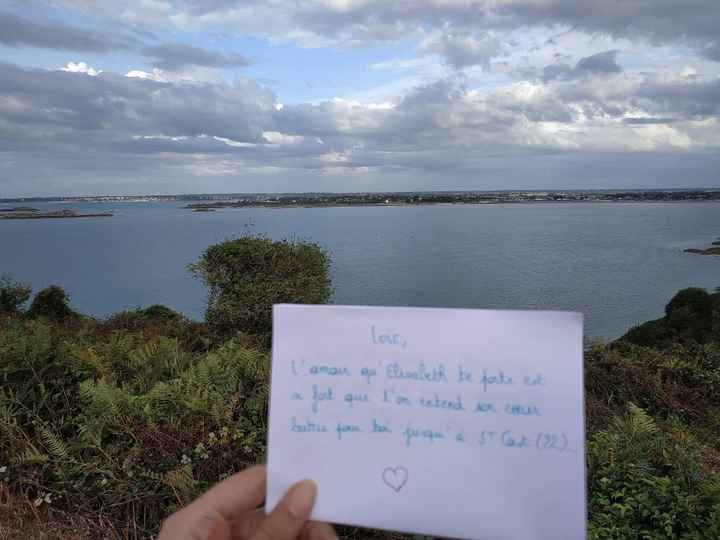 Loïc,
L'amour qu'Elisabeth te porte est
si fort que l'on entend son cœur
battre pour toi jusqu'à St Cast (22)...